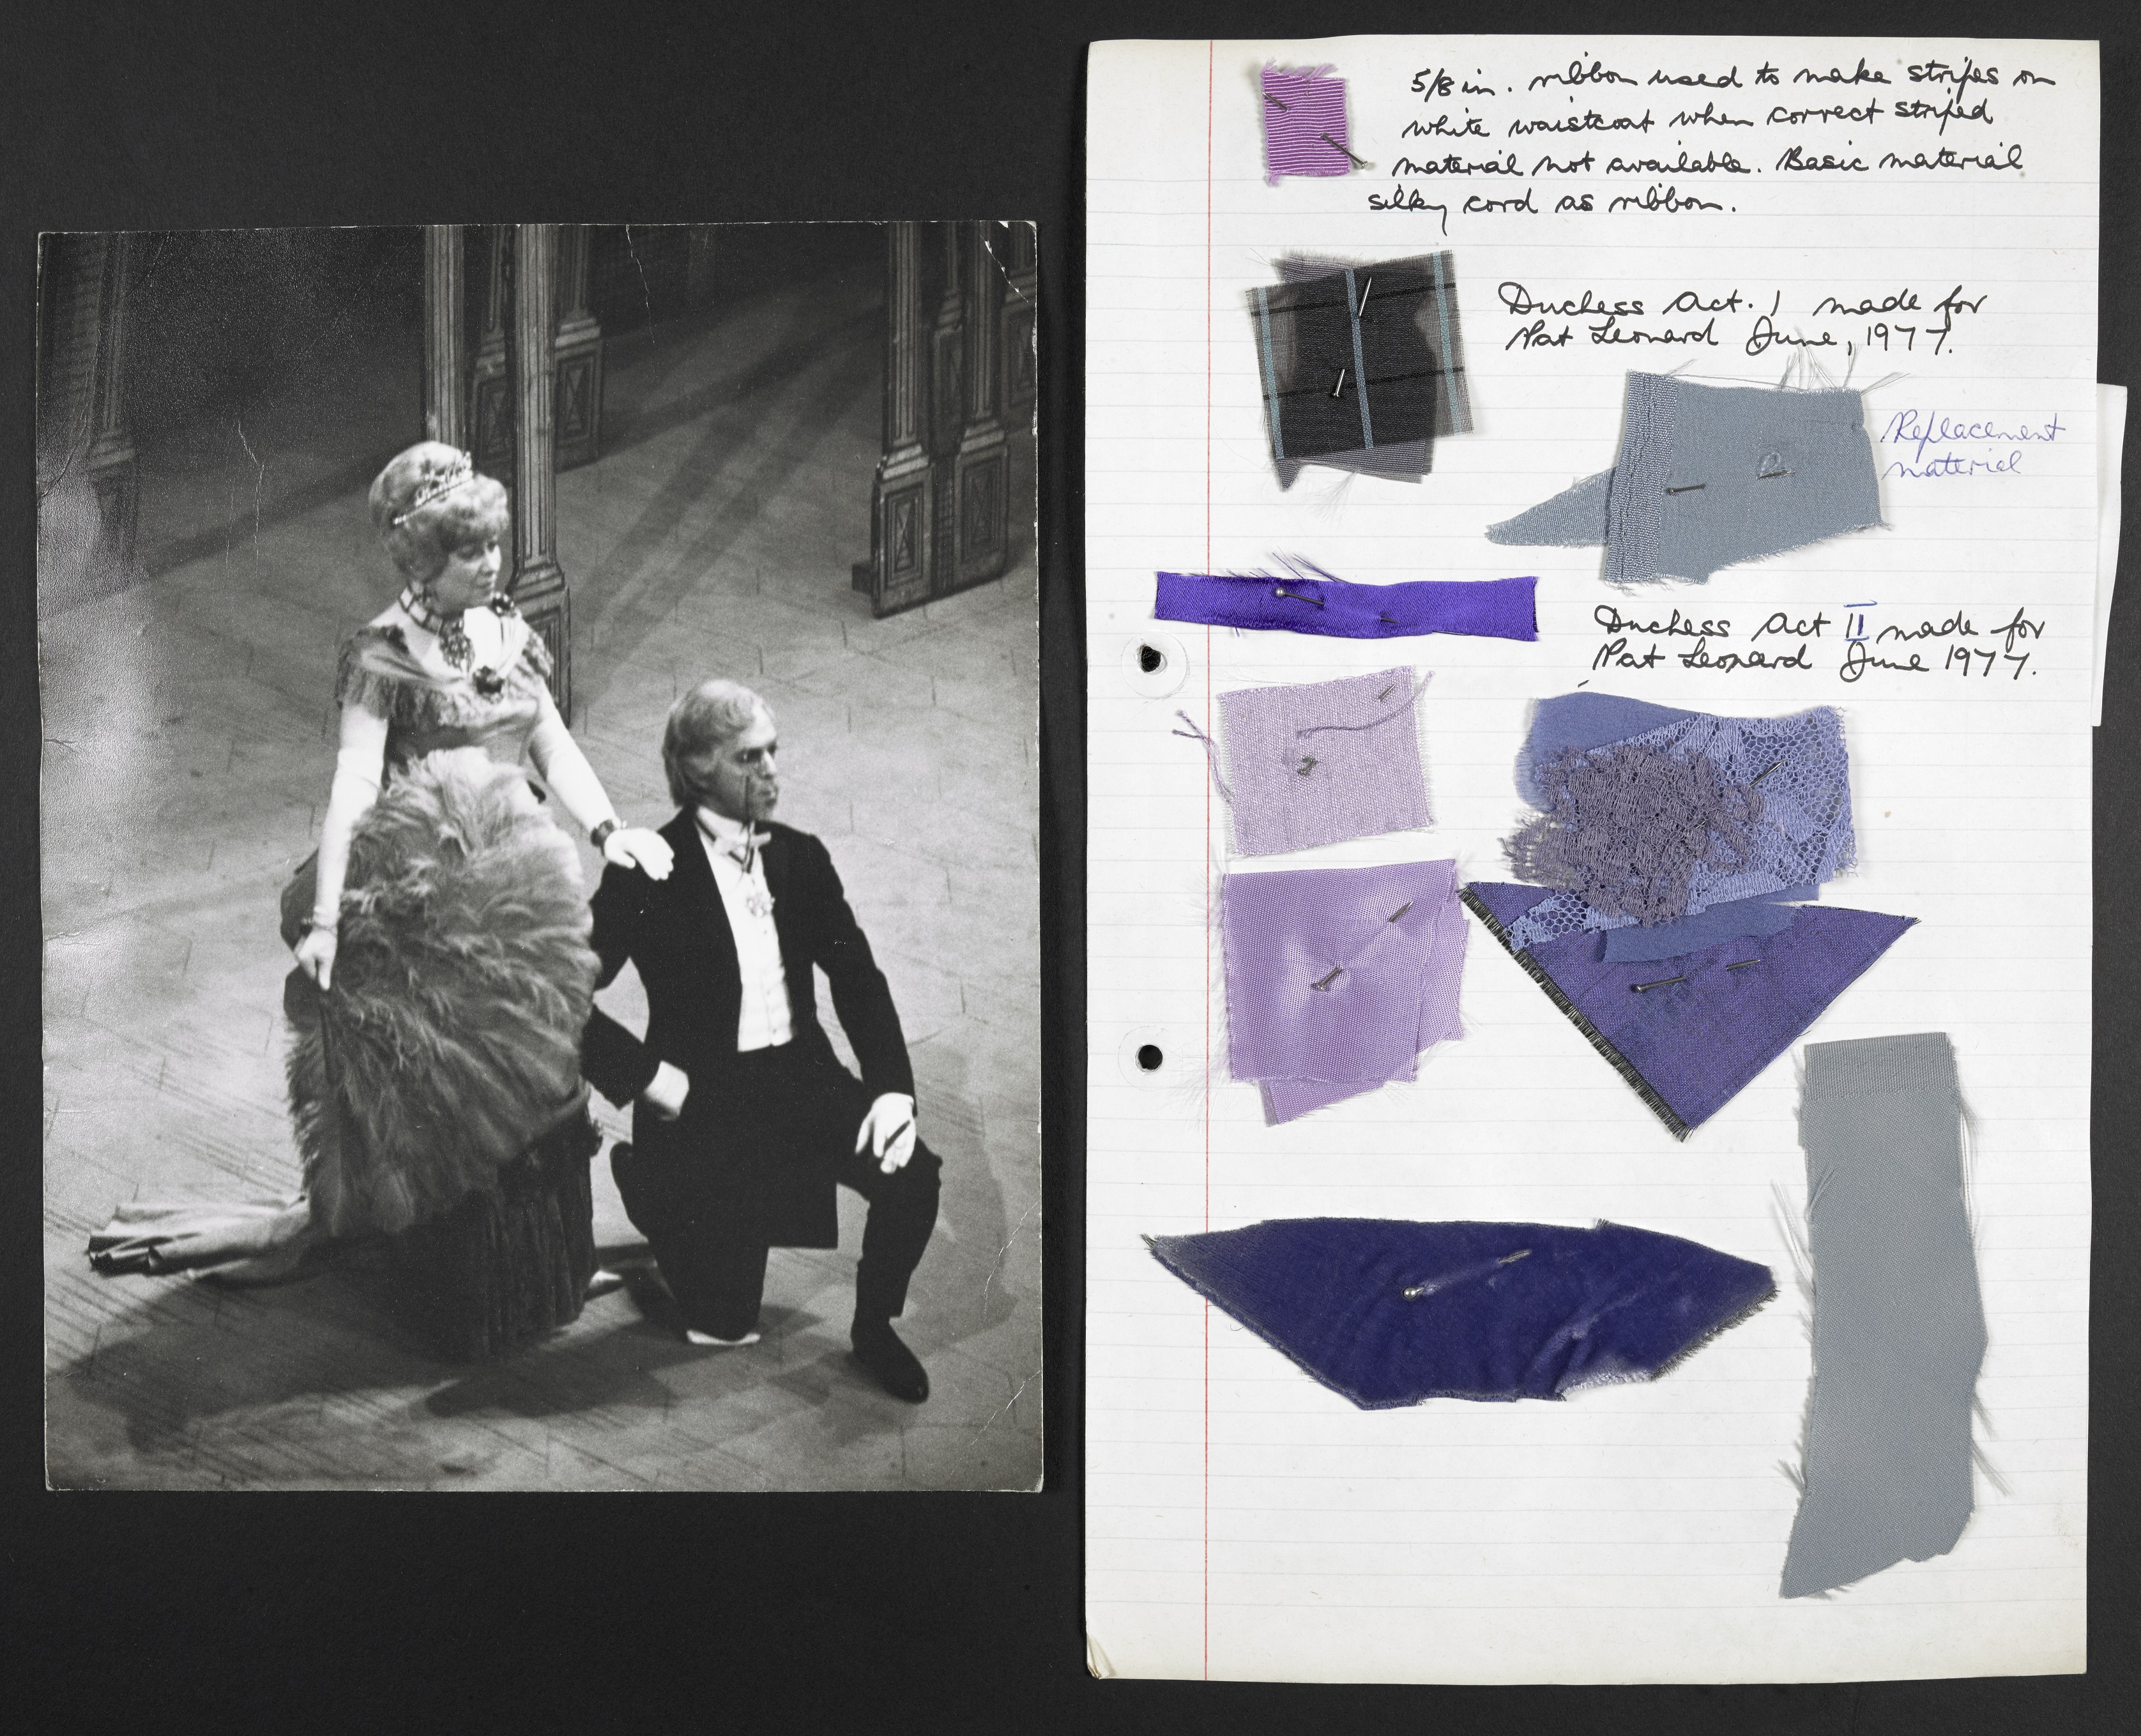 5/8 in. ribbon used to make stripes on
white waistcoat when correct striped
material not available. Basic material
silky cord as ribbon.
Duchess Act. 1 made for
Pat Leonard June, 1977.
Replacement
material
Duchess Act II made for
Pat Leonard June 1977.